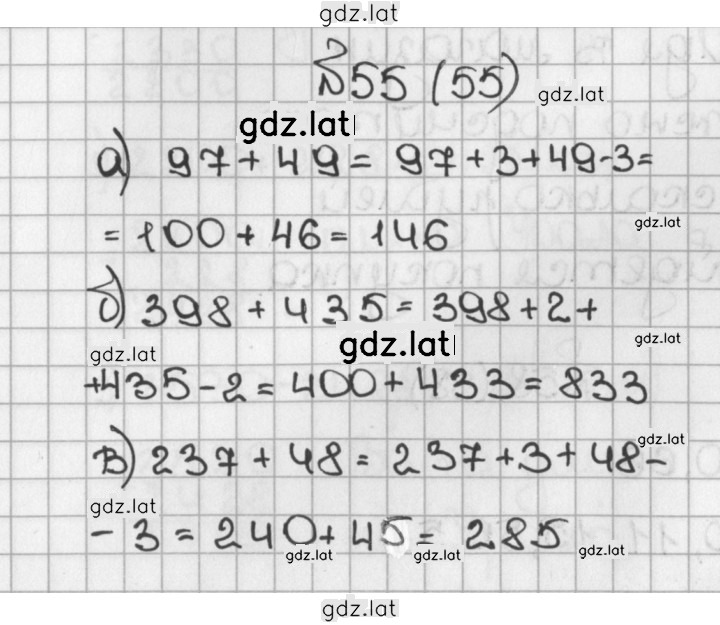 gdz.lat
№55 (55)
gdz.lat
gdz.lat
а) 97+49= 97+3+49-3=
gdz.lat
=100+46=146
б) 398+435=398+2+
gdz.lat
gdz.lat
gdz.lat
+435-2=400+433=833
gdz.lat
в) 237+48=237+3+48-
gdz.lat
-3=240+45=285
gdz.lat gdz.lat gdz.lat
gdz.lat